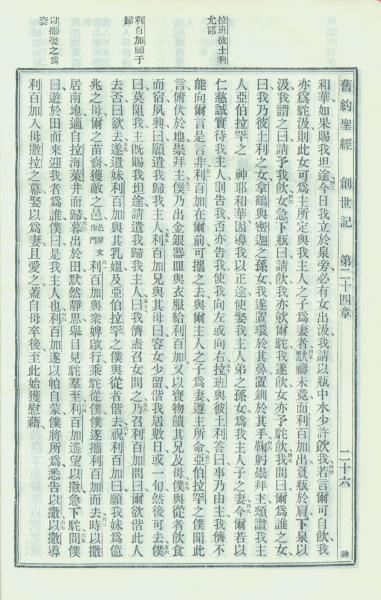 舊約聖經 創世記 第二十四章 二十六 神
和華如果賜我坦途今日我立於泉旁必有女出汲我請以瓶中水少許飲我若言爾可自飲我
亦爲駝汲則此女可爲主所定與我主人之子爲妻者默禱未竟而利百加出負瓶於肩下泉以
汲我謂之曰請予我飲女急下瓶曰請飲我亦飲爾駝我遂飲女亦予駝飲我問曰爾爲誰之女
曰我乃彼土利之女拿鶴與密迦之孫女我遂置環於其鼻置釧於其手鞠躬崇拜主頌讚我主
人亞伯拉罕之 神耶和華因導我以正途使娶我主人弟之孫女爲我主人子之妻今爾若以
仁慈誠實待我主人則告我否亦告我使我向左或向右拉班與彼土利答曰事乃由主我儕不
能向爾言是言非利百加在爾前可攜之去與爾主人之子爲妻遵主所命亞伯拉罕之僕聞此
言俯伏於地崇拜主僕乃出金銀器皿與衣服給利百加又以寶物饋其兄及母僕與從者飲食
而宿夙興曰願爾遣我歸我主人利百加兄與其母曰容女少留偕我居數日或一旬然後可去僕
曰莫阻我主既賜我坦途請遣我歸我主人曰我儕盍召女問之乃召利百加問曰爾欲偕此人
去否曰欲去遂遣妹利百加與其乳媼及亞伯拉罕之僕與從者偕去祝利百加曰願我妹爲億
兆之母爾之苗裔獲敵之邑邑原文作門利百加與衆婢啟行乘駝從僕僕遂攜利百加而去時以撒
居南地適自拉海萊井而歸暮出於田默然靜思舉目見駝羣至利百加遙望以撒急下駝問僕
曰遊於田而來迎我者爲誰僕曰是我主人也利百加遂以帕自蒙僕將所爲悉告以撒以撒導
利百加入母撒拉之幕娶以爲妻且愛之蓋自母卒後至此始獲慰藉
拉班彼土利
允諾
利百加適于
歸
以撒娶之爲
妻